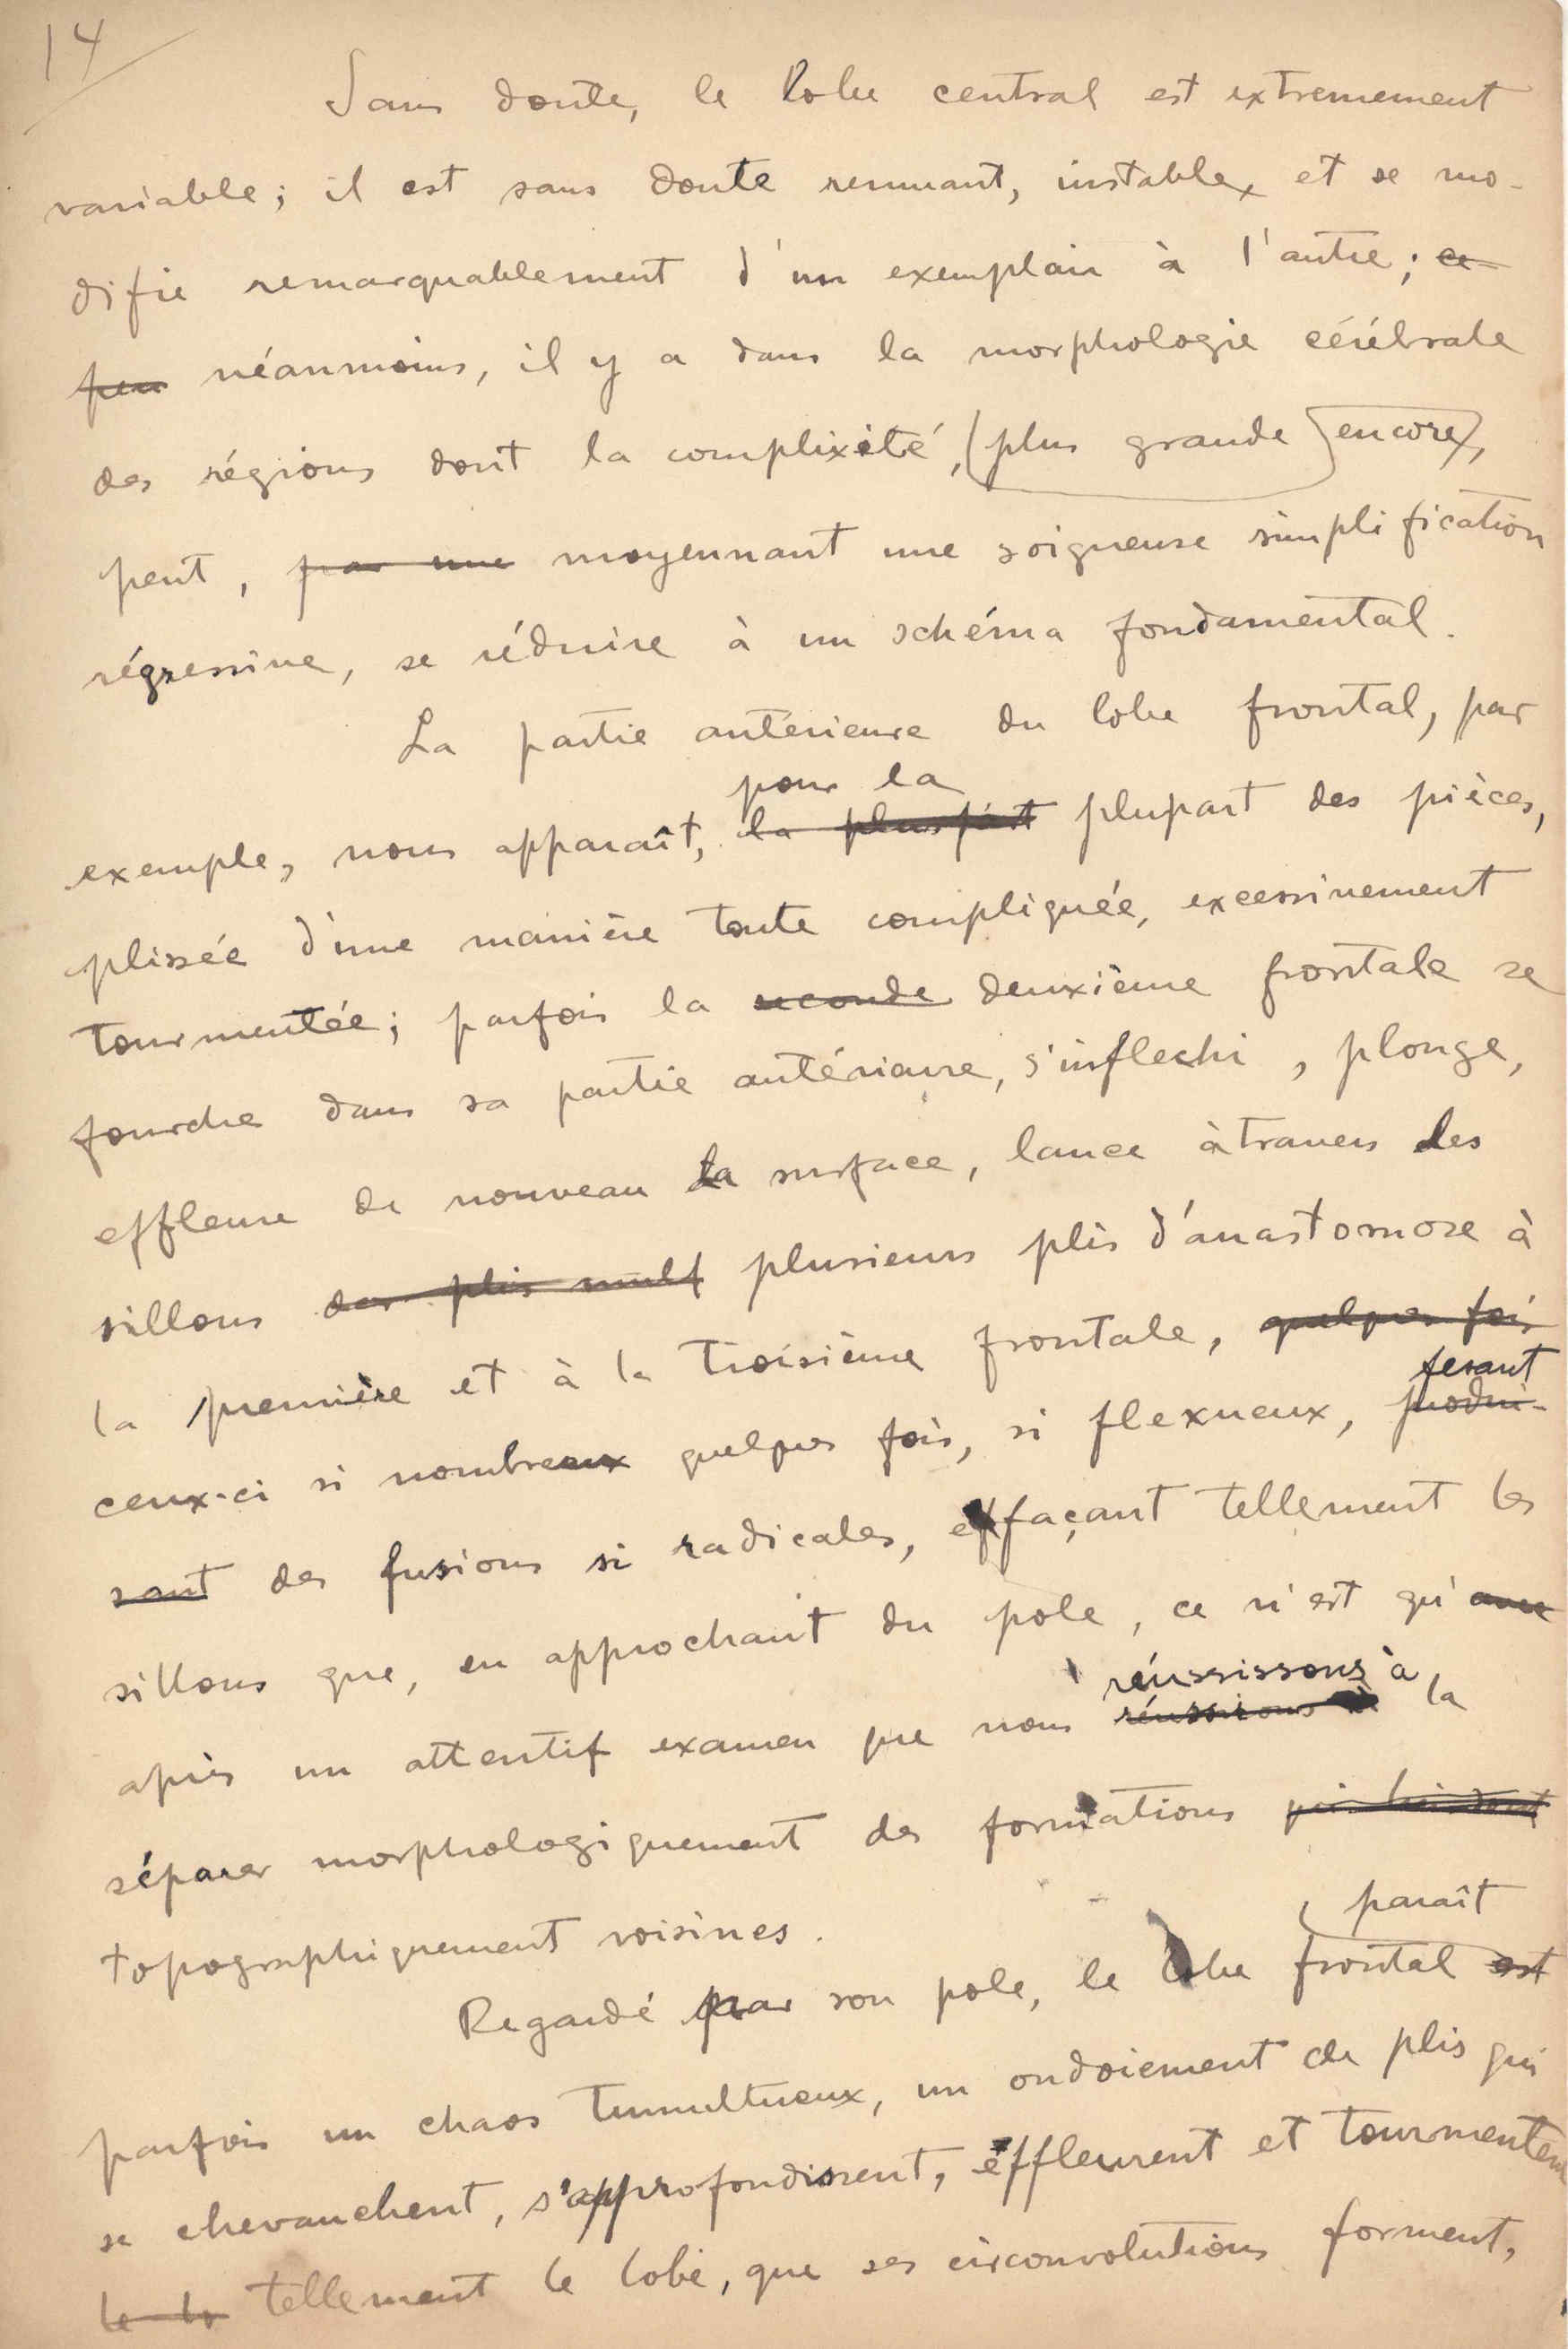 14
Sans doute, le lobe central est extremement
variable; il est sans doute remuant, instable, et se mo-
difie remarquablement d'un exemplaire à l'autre; ce
peu néanmoins, il y a dans la morphologie cérébrale
des régions dont la complixité, (plus grande encore),
peut, par une moyennant une soigneuse simplification
régressive, se réduire à un schéma fondamental.
La partie antérieure du lobe frontal, par
pour la
exemple, nous apparaît, la plus part plupart des pièces,
plissée d'une manière toute compliquée, excessivement
tourmentée; parfois la seconde deuxième frontale se
fourche dans sa partie antérieure, s'inflechi, plonge,
effleure de nouveau la surface, lance àtravers les
sillons des plis mult plusieurs plis d'anastomose à
la première et à la troisième frontale, quelques fois
fesant
ceux-ci si nombreux quelques fois, si flexueux, produi-
sant des fusions si radicales, effaçant tellement les
sillons que, en approchant du pole, ce n'est qu'
réussissons à
après un attentif examen que nous réussions à la
séparer morphologiquement des formations qui lui sont
topographiquement voisines.
paraît
Regardé par son pole, le lobe frontal est
parfois un chaos tumultueux, un ondoiement de plis qui
se chevauchent, s'approfondissent, effleurent et tourmentent
le lo tellement le lobe, que ses circonvolutions forment,